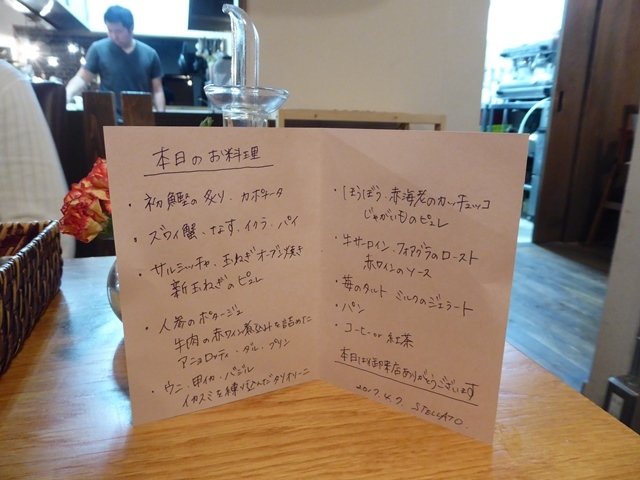 本日のお料理
・初鰹の炙り、カポナータ
・ズワイ蟹、なす、イクラ、パイ
・サルシッチャ、玉ねぎオーブン焼き
新玉ねぎのピュレ
・人参のポタージュ
牛肉の赤ワイン煮込みを詰めた
アニョロッティ・ダル・プリン
・ウニ・甲イカ・バジル
イカスミを練り込んだタリオリーニ
・ほうぼう、赤海老のカッチュッコ
じゃがいものピュレ
・牛サーロイン、フォアグラのロースト
赤ワインのソース
・苺のタルト ミルクのジェラート
・パン
・コーヒー or 紅茶
本日は御来店ありがとうございます
2017.4.7. STELLATO